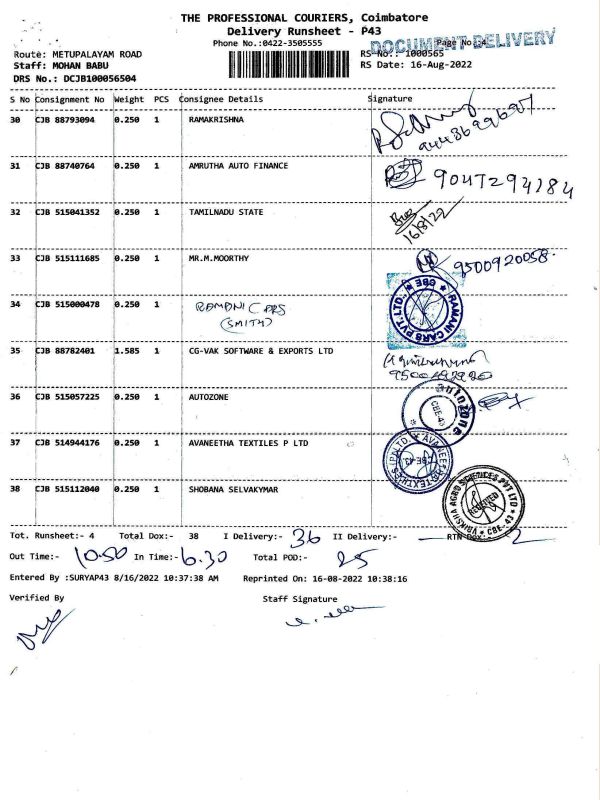 THE PROFESSIONAL COURIERS, Coimbatore
Delivery Runsheet - P43
DOCUMENT DELIVERY
Phone No.:0422-3505555
Page No:4
Route: METUPALAYAM ROAD
RS No.: 1000565
Staff: MOHAN BABU
RS Date: 16-Aug-2022
DRS No.: DCJB100056504
S No Consignment No Weight PCS Consignee Details Signature
30 CJB 88793094 0.250 1 RAMAKRISHNA
9443699697
31 CJB 88740764 0.250 1 AMRUTHA AUTO FINANCE
9047294184
32 CJB 515041352 0.250 1 TAMILNADU STATE
16/8/22
33 CJB 515111685 0.250 1 MR.M.MOORTHY
9500920058.
34 CJB 515000478 0.250 1 RAMANI CARS
(SMITH)
RAMANI CARS PVT. LTD. * CBE *
35 CJB 88782401 1.585 1 CG-VAK SOFTWARE & EXPORTS LTD
36 CJB 515057225 0.250 1 AUTOZONE
autozone CBE-43
37 CJB 514944176 0.250 1 AVANEETHA TEXTILES P LTD
AVANEETHA TEXTILES (P) LTD. CBE-43
38 CJB 515112040 0.250 1 SHOBANA SELVAKYMAR
AGRO SCIENCES PVT LTD * CBE-43 * RECEIVED
Tot. Runsheet:- 4 Total Dox:- 38 I Delivery:- 36 II Delivery:- — RTN Dox:- 2
Out Time:- 10.50 In Time:- 6.30 Total POD:- 25
Entered By :SURYAP43 8/16/2022 10:37:38 AM Reprinted On: 16-08-2022 10:38:16
Verified By Staff Signature